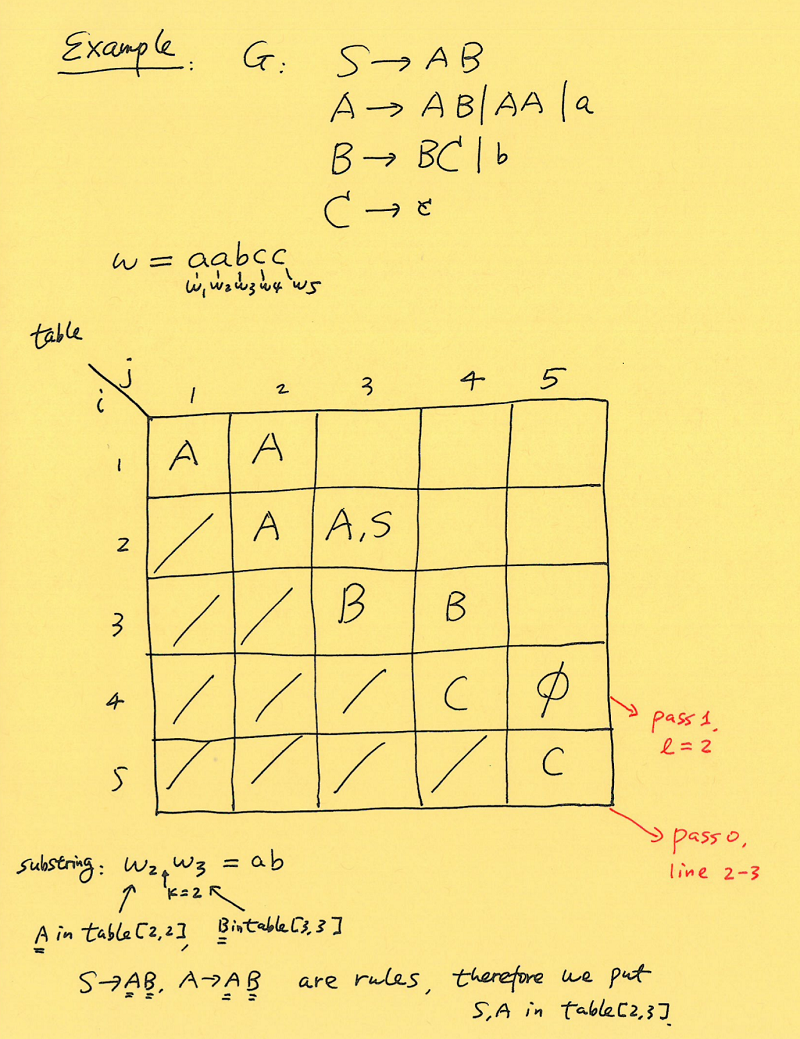 Example: G: S → AB
A → AB | AA | a
B → BC | b
C → c
w = aabcc
w1 w2 w3 w4 w5
table
j
i
1 2 3 4 5
1 A A
2 / A A,S
3 / / B B
4 / / / C ∅
5 / / / / C
pass 1,
l = 2
pass 0,
line 2-3
substring: w2 w3 = ab
k=2
A in table[2,2], B in table[3,3]
S→AB, A→AB are rules, therefore we put
S,A in table[2,3].